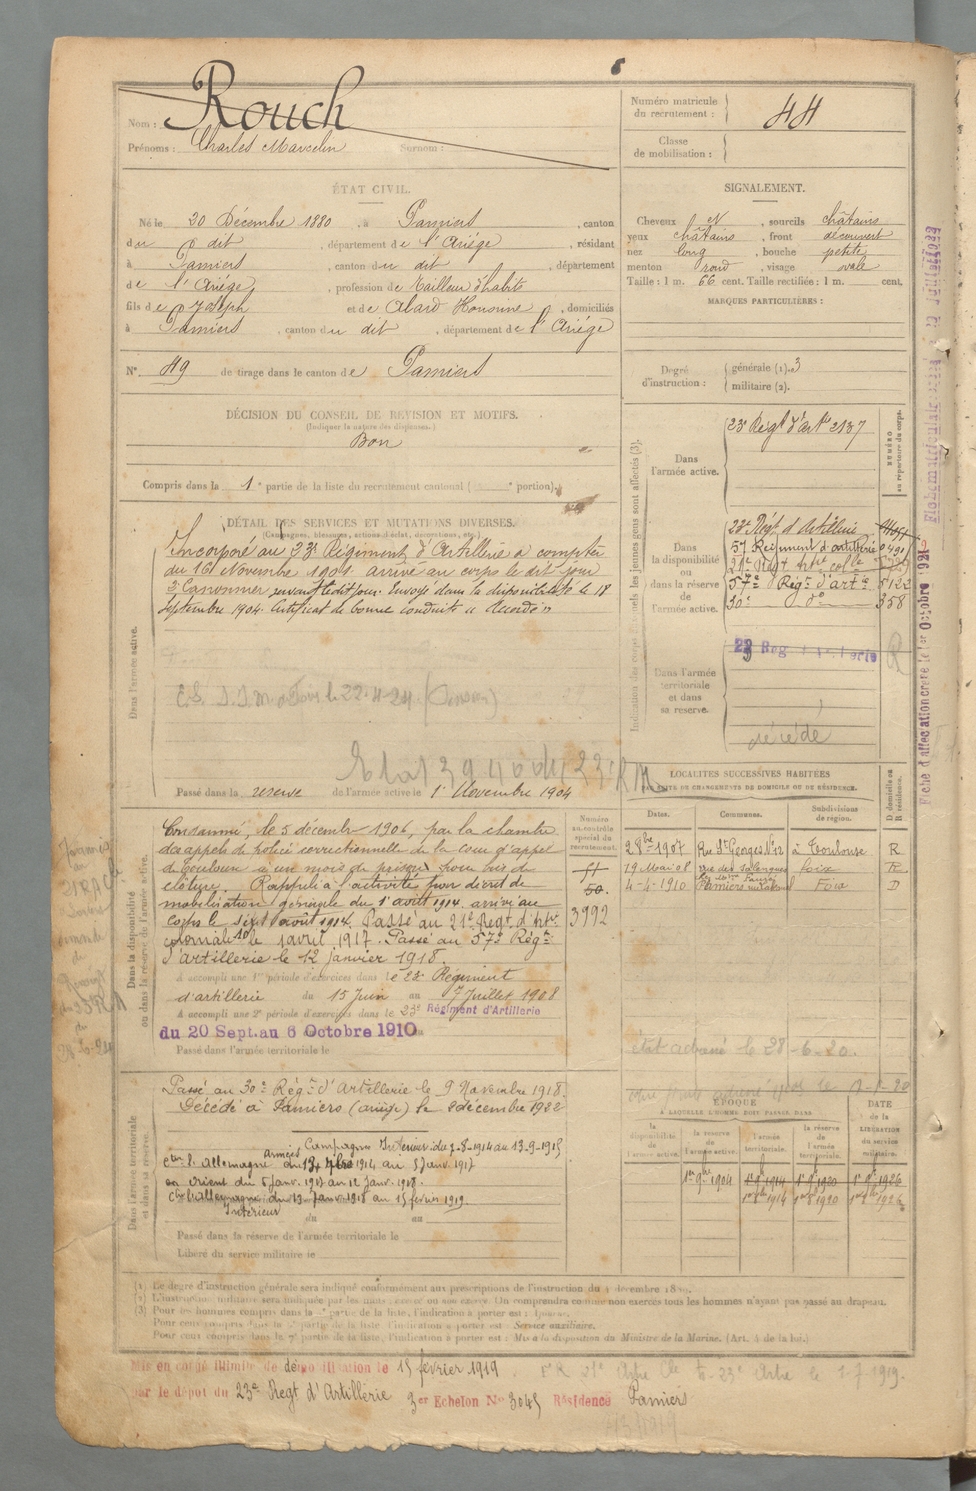 6
Nom : Rouch
Prénoms : Charles Marcelin Surnom :
Numéro matricule du recrutement : 44
Classe de mobilisation :
ÉTAT CIVIL.
Né le 30 Décembre 1880, à Pamiers, canton
du dit, département de l'Ariège, résidant
à Pamiers, canton du dit, département
de l'Ariège, profession de tailleur d'habits
fils de Joseph et de Alard Honorine, domiciliés
à Pamiers, canton du dit, département de l'Ariège
N° 49 de tirage dans le canton de Pamiers
SIGNALEMENT.
Cheveux et, sourcils châtains
yeux châtains, front découvert
nez long, bouche petite
menton rond, visage ovale
Taille : 1 m. 66 cent. Taille rectifiée : 1 m. cent.
MARQUES PARTICULIÈRES :
Degré d'instruction : générale (1). 3
militaire (2).
DÉCISION DU CONSEIL DE REVISION ET MOTIFS.
(Indiquer la nature des dispenses.)
Bon
Compris dans la 1e partie de la liste du recrutement cantonal ( e portion).
DÉTAIL DES SERVICES ET MUTATIONS DIVERSES.
(Campagnes, blessures, actions d'éclat, décorations, etc.)
Dans l'armée active.
Incorporé au 23e Régiment d'Artillerie à compter
du 16 Novembre 1901. arrivé au corps le dit jour
2e Canonnier suivant le dit jour. Envoyé dans la disponibilité le 18
Septembre 1904. Certificat de bonne conduite "Accordé"
Passé dans la réserve de l'armée active le 1er Novembre 1904
Indication des corps auxquels les jeunes gens sont affectés (3).
NUMÉRO au répertoire du corps.
Dans l'armée active.
23e Régt d'art ie 2137
Dans la disponibilité ou dans la réserve de l'armée active.
23e Régt d'Artillerie
5e Régiment d'artillerie 0491
21e Régt Artie colle
57e Régt d'artie 5122
30e do 358
Dans l'armée territoriale et dans sa réserve.
23 Reg
R
décédé
Fiche d'affectation créée le 1er Octobre 1921
LOCALITÉS SUCCESSIVES HABITÉES
PAR SUITE DE CHANGEMENTS DE DOMICILE OU DE RÉSIDENCE.
D domicile ou R résidence.
Dates. Communes. Subdivisions de région.
28 bre 1907 Rue St Georges N° 12 à Toulouse R
19 Mai 08 rue des Salenques Foix R
4-4-1910 Pamiers Foix D
Numéro au contrôle spécial du recrutement.
50.
3992
Dans la disponibilité ou dans la réserve de l'armée active.
Condamné, le 5 décembre 1906, par la chambre
des appels de police correctionnelle de la cour d'appel
de Toulouse à un mois de prison pour bris de
clôture. Rappelé à l'activité par décret de
mobilisation générale du 1er août 1914. arrivé au
corps le six août 1914. Passé au 21e Regt d'Artie
coloniale le 1 avril 1917. Passé au 57e Régt
d'artillerie le 12 janvier 1918.
A accompli une 1re période d'exercices dans le 23e Régiment
d'artillerie du 15 Juin au 7 Juillet 1908
A accompli une 2e période d'exercices dans le 23e Régiment d'Artillerie
du 20 Sept. au 6 Octobre 1910
Passé dans l'armée territoriale le
état adressé le 28-6-20.
Dans l'armée territoriale et dans sa réserve.
Passé au 30e Régt d'Artillerie le 9 Novembre 1918.
Décédé à Pamiers (ariège) le 8 décembre 1922
Campagnes Intérieur du 2-8-1914 au 13-9-1914
armées
C. l'Allemagne du 14 7bre 1914 au 5 janv. 1917
en Orient du 6 janv. 1917 au 12 janv. 1918.
C. l'Allemagne du 13 Janv. 1918 au 15 février 1919.
Intérieur du au
Passé dans la réserve de l'armée territoriale le
Libéré du service militaire le
ÉPOQUE
À LAQUELLE L'HOMME DOIT PASSER DANS
DATE de la LIBÉRATION du service militaire.
la disponibilité de l'armée active. la réserve de l'armée active. l'armée territoriale. la réserve de l'armée territoriale.
1er 9bre 1904 1er 9 1914 1er 9 1920 1er 9 1926
1er 8bre 1914 1er 8 1920 1er 8bre 1926
(1) Le degré d'instruction générale sera indiqué conformément aux prescriptions de l'instruction du 4 décembre 1889.
(2) L'instruction militaire sera indiquée par les mots : exercé ou non exercé. On comprendra comme non exercés tous les hommes n'ayant pas passé au drapeau.
(3) Pour les hommes compris dans la 1re partie de la liste, l'indication à porter est :
Pour ceux compris dans la partie de la liste, l'indication à porter est : Service auxiliaire.
Pour ceux compris dans la 7e partie de la liste, l'indication à porter est : Mis à la disposition du Ministre de la Marine. (Art. 4 de la loi.)
Mis en congé illimité de démobilisation le 15 février 1919
par le dépôt du 23e Regt d'Artillerie 3er Echelon N° 3045 Résidence Pamiers
21e Artie Cle 23e Artie le 1-7-1919.